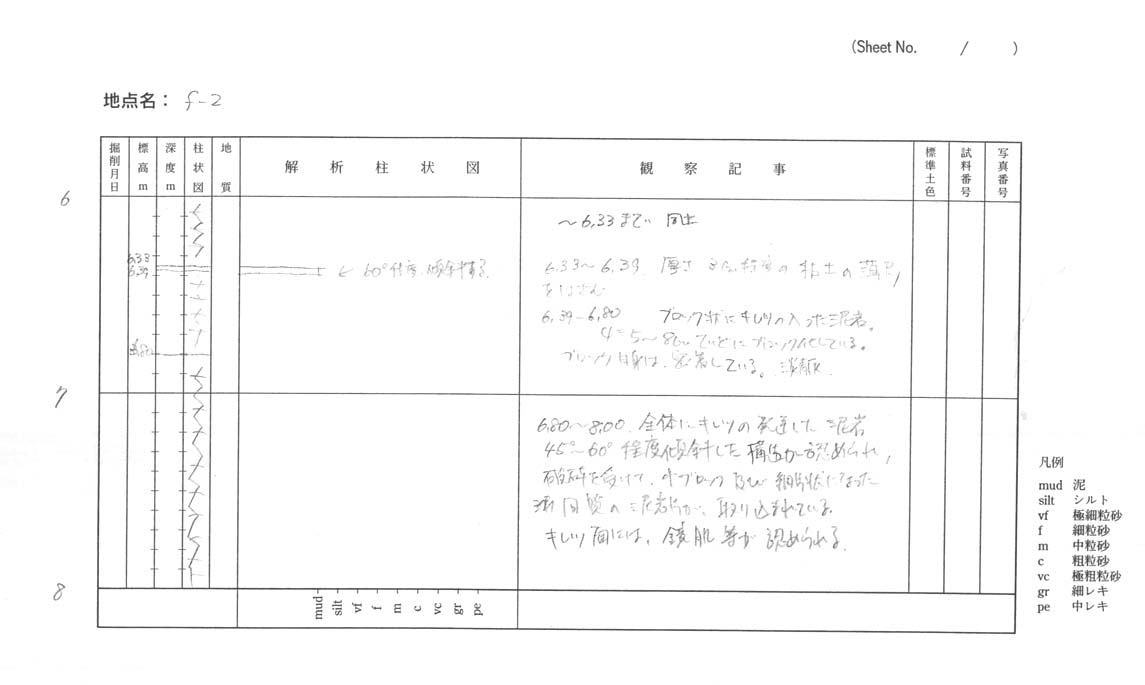 (Sheet No. / )
地点名： f-2
掘削月日
標高m
深度m
柱状図
地質
解析柱状図
観察記事
標準土色
試料番号
写真番号
6
〜6.33まで 同上
6.33
6.39
← 60°程度、傾斜する。
6.33〜6.39 厚さ 程度の 粘土の薄層
をはさむ
6.39-6.80 ブロック状にキレツの入った泥岩。
5〜8cmていどにブロック化している。
6.80
ブロック自身は、密着している。
7
6.80〜8.00 全体にキレツの発達した 泥岩
45°〜60°程度傾斜した構造が認められ、
破砕を受けて、小ブロック及び細片状になった
同質の泥岩片が、取り込まれている。
キレツ面には、鏡肌等が認められる。
8
mud silt vf f m c vc gr pe
凡例
mud 泥
silt シルト
vf 極細粒砂
f 細粒砂
m 中粒砂
c 粗粒砂
vc 極粗粒砂
gr 細レキ
pe 中レキ